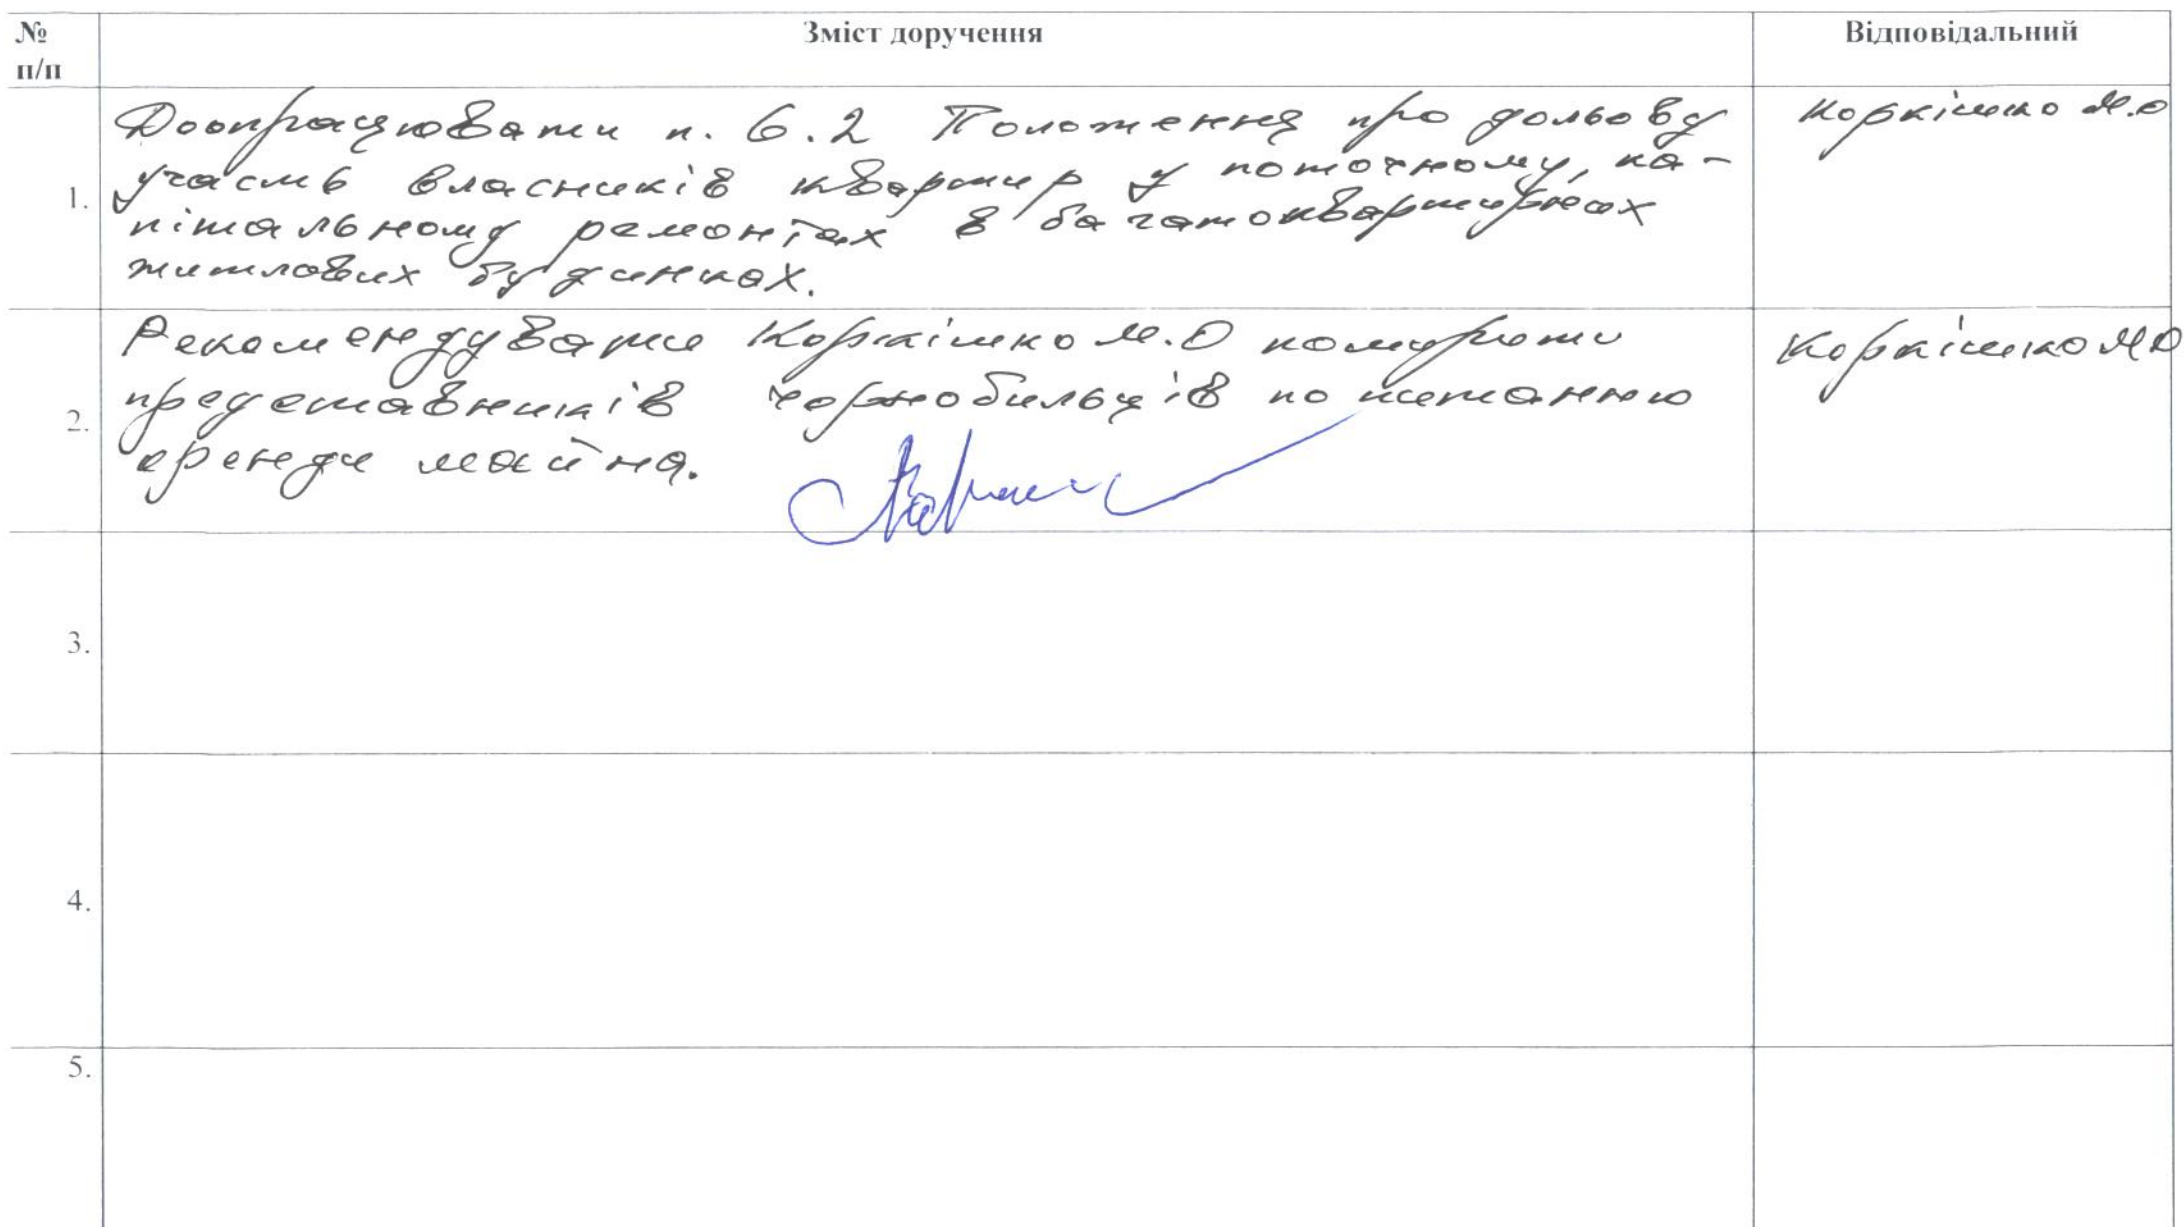 № п/п Зміст доручення Відповідальний
1. Доопрацювати п. 6.2 Положення про дольову Коркішко М.О
участь власників квартир у поточному, ка-
пітальному ремонтах в багатоквартирних
житлових будинках.
2. Рекомендувати Коркішко М.О Коркішко МО
представників чорнобильців по питанню
оренди майна.
3.
4.
5.